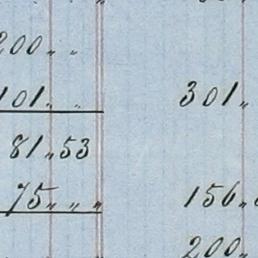 200 „ „
101 „ „ 301 „
81 „ 53
75 „ „ „ 156 „
200 „